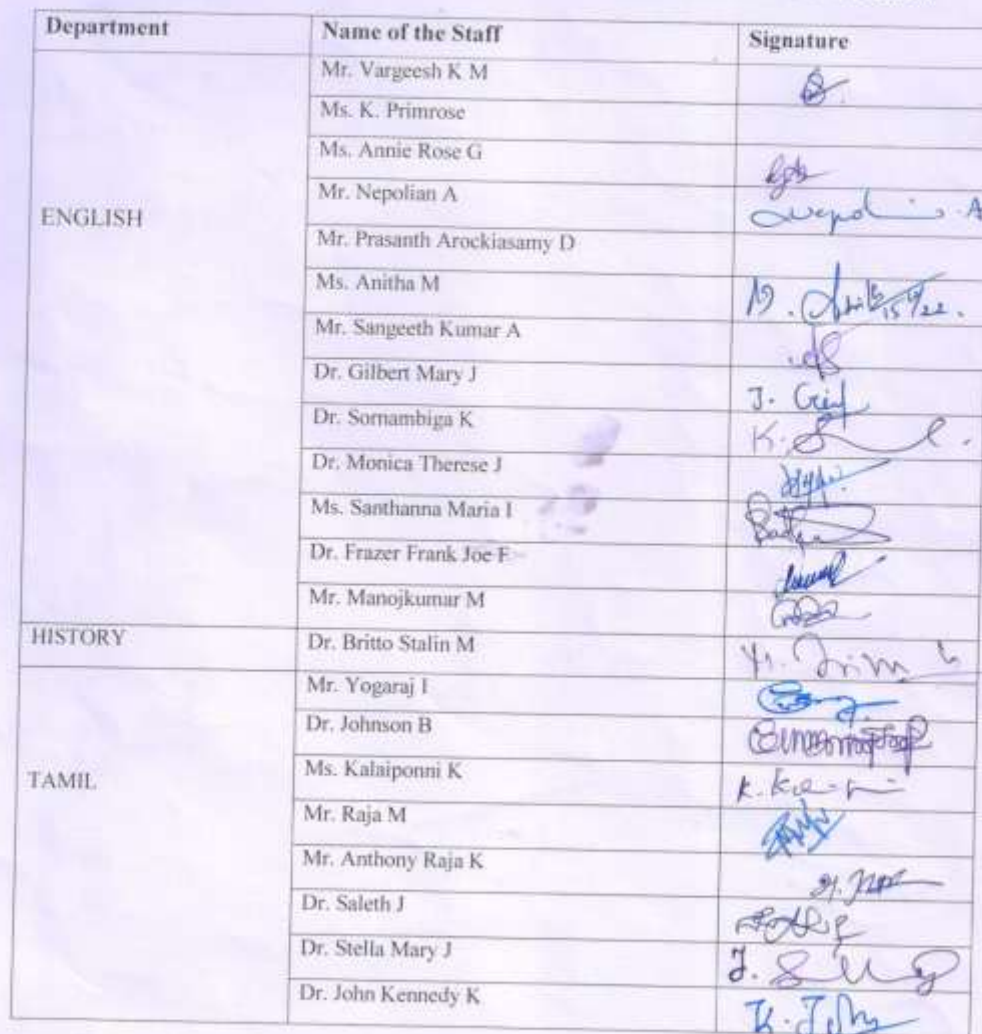 Department Name of the Staff Signature
ENGLISH
Mr. Vargeesh K M
Ms. K. Primrose
Ms. Annie Rose G
Mr. Nepolian A
Mr. Prasanth Arockiasamy D
Ms. Anitha M
Mr. Sangeeth Kumar A
Dr. Gilbert Mary J J.
Dr. Sornambiga K K.
Dr. Monica Therese J
Ms. Santhanna Maria I
Dr. Frazer Frank Joe F
Mr. Manojkumar M
HISTORY Dr. Britto Stalin M
TAMIL
Mr. Yogaraj I
Dr. Johnson B
Ms. Kalaiponni K K.
Mr. Raja M
Mr. Anthony Raja K
Dr. Saleth J
Dr. Stella Mary J J.
Dr. John Kennedy K K. John